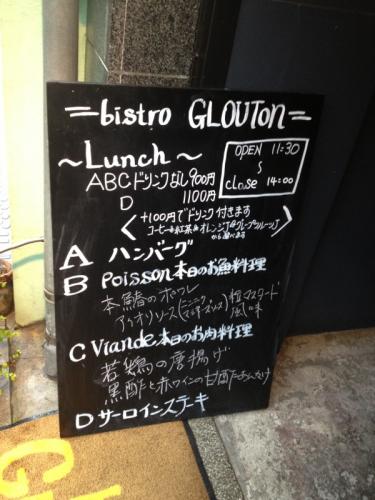 =bistro GLOUTON=
~Lunch~
OPEN 11:30
~
close 14:00
ABCドリンクなし900円
D 1100円
+100円でドリンク付きます
コーヒーor紅茶orオレンジJorグレープフルーツJ
から選べます
A ハンバーグ
B Poisson本日のお魚料理
本鰆のポワレ
粒マスタード
風味
C Viande本日のお肉料理
若鶏の唐揚げ
黒酢と赤ワインの甘酒たあんかけ
D サーロインステーキ
Gl